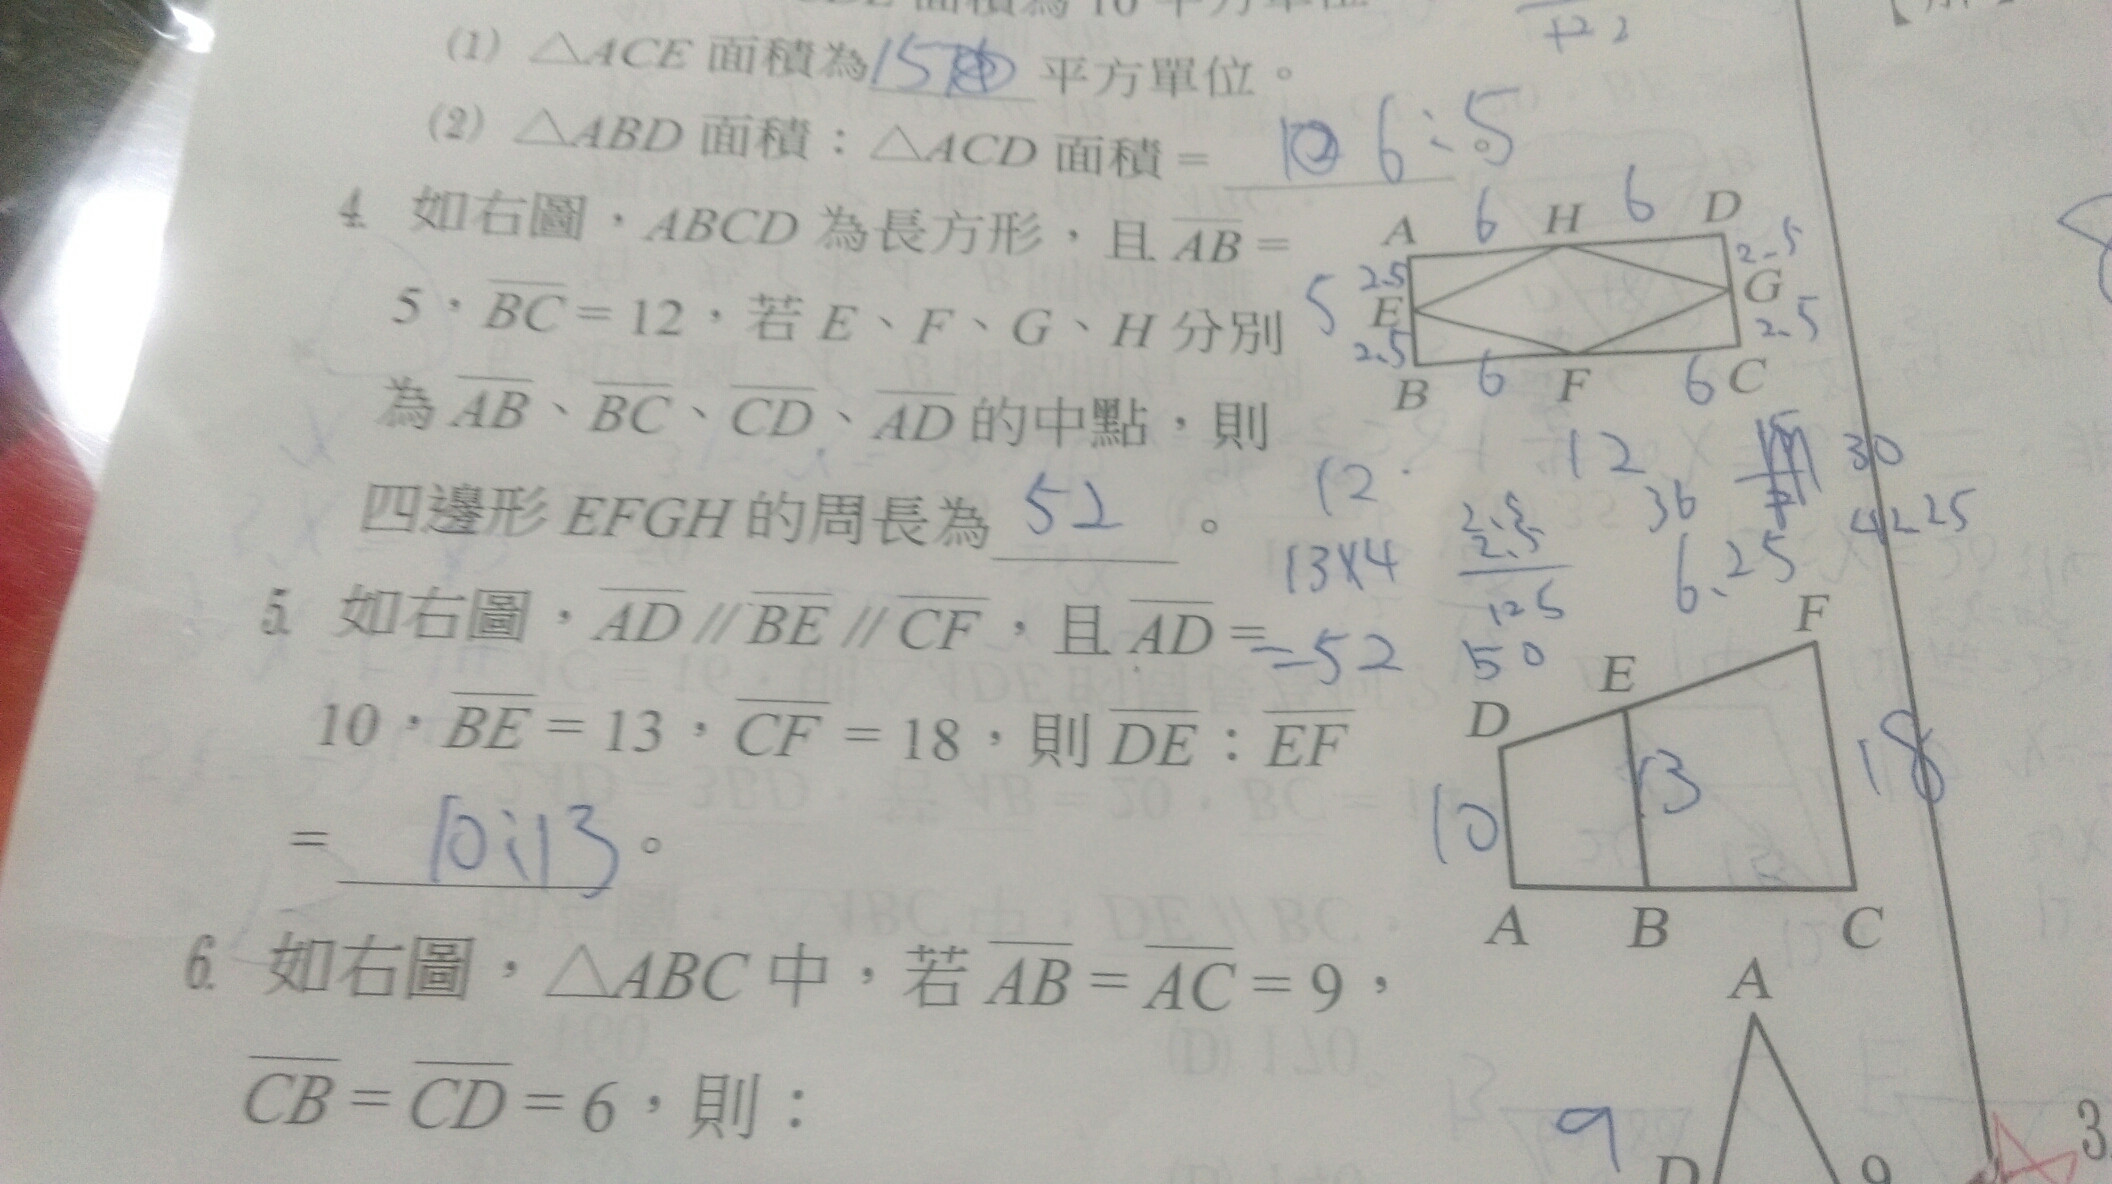 面積為10平方單位
(1) △ACE 面積為 15 平方單位。
(2) △ABD 面積：△ACD 面積＝ 6:5 。
4. 如右圖，ABCD 為長方形，且 AB＝
5，BC＝12，若 E、F、G、H 分別
為 AB、BC、CD、AD 的中點，則
四邊形 EFGH 的周長為 52 。
A 6 H 6 D
2.5 2.5
5 E G
2.5 2.5
B 6 F 6 C
12 12 30
36 4225
13×4 2.5
2.5 6.25
125
=52 50
5. 如右圖，AD // BE // CF，且 AD＝
10，BE＝13，CF＝18，則 DE：EF
＝ 10:13 。
F
E
D
10 13 18
A B C
6. 如右圖，△ABC 中，若 AB＝AC＝9，
CB＝CD＝6，則：
A
9
D 9
3.